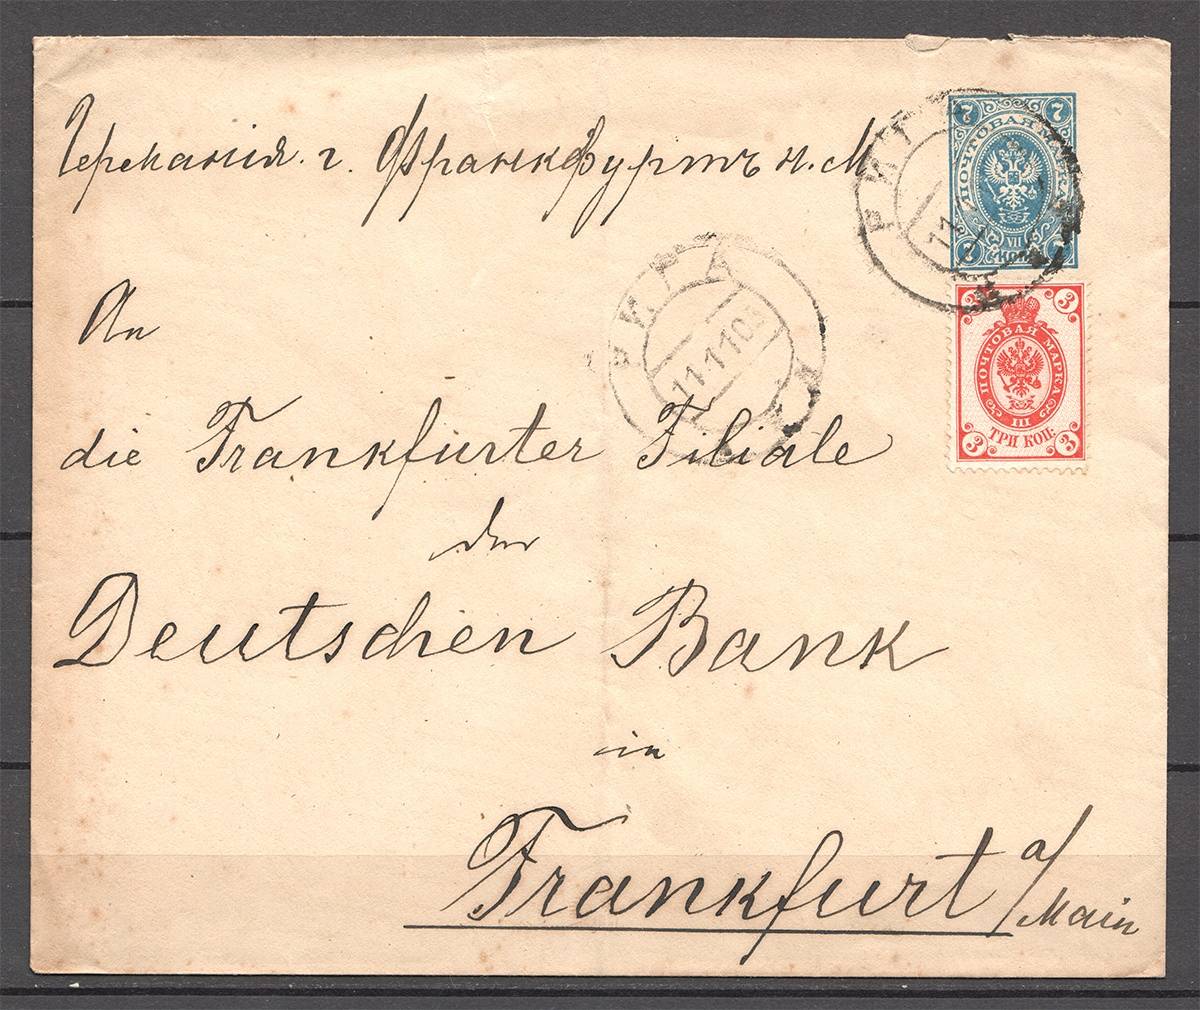 Германия. г. Франкфуртъ н. М
An
die Frankfurter Filiale
der
Deutschen Bank
in
Frankfurt a/Main
7 7
ПОЧТОВАЯ МАРКА
VII
7 КОП. 7
РИГА
11
РИГА
11.1.10
3 3
ПОЧТОВАЯ МАРКА
III
ТРИ КОП.
3 3